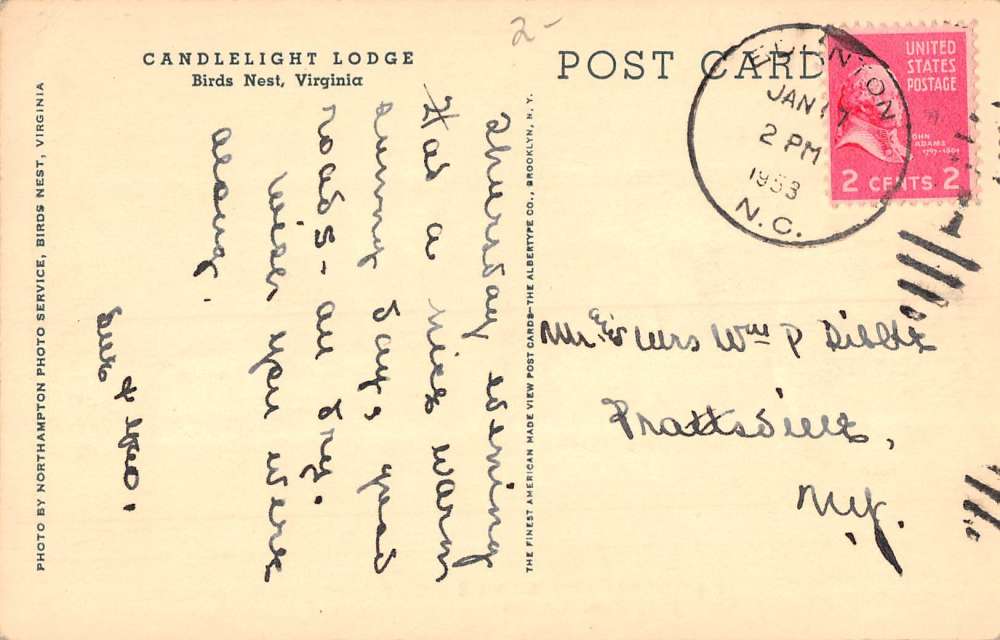 2-
CANDLELIGHT LODGE
Birds Nest, Virginia
POST CARD
EDENTON
JAN 17
2 PM
1953
N.C.
UNITED
STATES
POSTAGE
JOHN
ADAMS
1797-1801
2 CENTS 2
Thursday evening
Had a nice warm
sunny day, good
roads - all dry.
Wish you were
along.
PHOTO BY NORTHAMPTON PHOTO SERVICE, BIRDS NEST, VIRGINIA
THE FINEST AMERICAN MADE VIEW POST CARDS—THE ALBERTYPE CO., BROOKLYN, N. Y.
Mr. & Mrs Wm P Dibble
Prattsville,
N.Y.